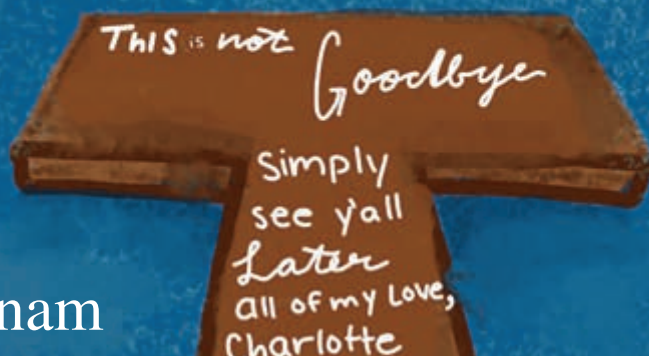 This is not Goodbye
Simply
see y'all
Later
all of my Love,
nam
Charlotte